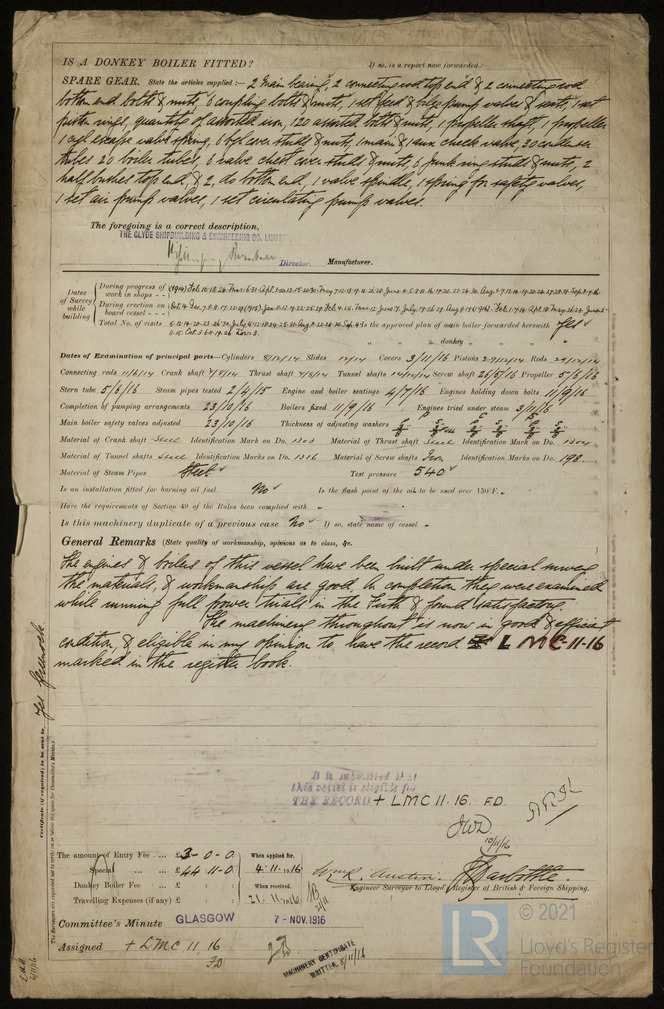 IS A DONKEY BOILER FITTED? If so, is a report now forwarded?
SPARE GEAR. State the articles supplied:— 2 main bearing, 2 connecting rod top end & 2 connecting rod
bottom end bolts & nuts, 6 coupling bolts & nuts, 1 set feed & bilge pump valves & seats, 1 set
piston rings, quantity of assorted iron, 120 assorted bolts & nuts, 1 propeller shaft, 1 propeller
1 cyl escape valve spring, 6 cyl cover studs & nuts, 1 main & 1 aux check valve, 30 condenser
tubes 20 boiler tubes, 6 valve chest cover studs & nuts, 6 junk ring studs & nuts, 2
half bushes top end, & 2, do bottom end, 1 valve spindle, 1 spring for safety valves,
1 set air pump valves, 1 set circulating pump valves.
The foregoing is a correct description,
THE CLYDE SHIPBUILDING & ENGINEERING CO. LIMITED
Director. Manufacturer.
Dates of Survey while building
During progress of work in shops - -
During erection on board vessel - - -
Total No. of visits
Is the approved plan of main boiler forwarded herewith Yes
" " " donkey " " "
Dates of Examination of principal parts—Cylinders 5/12/14 Slides 12/14 Covers 3/11/15 Pistons 29/12/14 Rods 29/12/14
Connecting rods 11/6/14 Crank shaft 7/5/14 Thrust shaft 7/5/14 Tunnel shafts 14/12/14 Screw shaft 26/5/15 Propeller 5/6/15
Stern tube 5/6/15 Steam pipes tested 2/4/15 Engine and boiler seatings 4/7/16 Engines holding down bolts 11/9/16
Completion of pumping arrangements 23/10/16 Boilers fixed 11/9/16 Engines tried under steam 3/11/16
Main boiler safety valves adjusted 23/10/16 Thickness of adjusting washers
Material of Crank shaft Steel Identification Mark on Do. 1303 Material of Thrust shaft Steel Identification Mark on Do. 1304
Material of Tunnel shafts Steel Identification Marks on Do. 1316 Material of Screw shafts Iron Identification Marks on Do. 198.
Material of Steam Pipes Steel Test pressure 540
Is an installation fitted for burning oil fuel No Is the flash point of the oil to be used over 150°F.
Have the requirements of Section 49 of the Rules been complied with
Is this machinery duplicate of a previous case No If so, state name of vessel
General Remarks (State quality of workmanship, opinions as to class, &c.
The engines & boilers of this vessel have been built under special survey
the materials, & workmanship are good. On completion they were examined
while running full power trials in the Firth & found satisfactory.
The machinery throughout is now in good & efficient
condition, & eligible in my opinion to have the record + LMC-11-16
marked in the register book.
It is submitted that
this vessel is eligible for
THE RECORD + LMC 11. 16. F.D.
JWD
10/11/16
Certificate (if required) to be sent to Yes Greenock
(The Surveyors are requested not to write on or below the space for Committee's Minute.)
The amount of Entry Fee ... £ 3-0-0 When applied for,
Special ... £ 44 11-0. 4.11.1916
Donkey Boiler Fee ... £ : : When received,
Travelling Expenses (if any) £ : : 21.11.1916
Wm R. Austin.
Engineer Surveyor to Lloyd's Register of British & Foreign Shipping.
Committee's Minute GLASGOW 7 - NOV. 1916
Assigned + LMC 11.16
FD
MACHINERY CERTIFICATE
WRITTEN 8/11/16
LR
© 2021
Lloyd's Register
Foundation